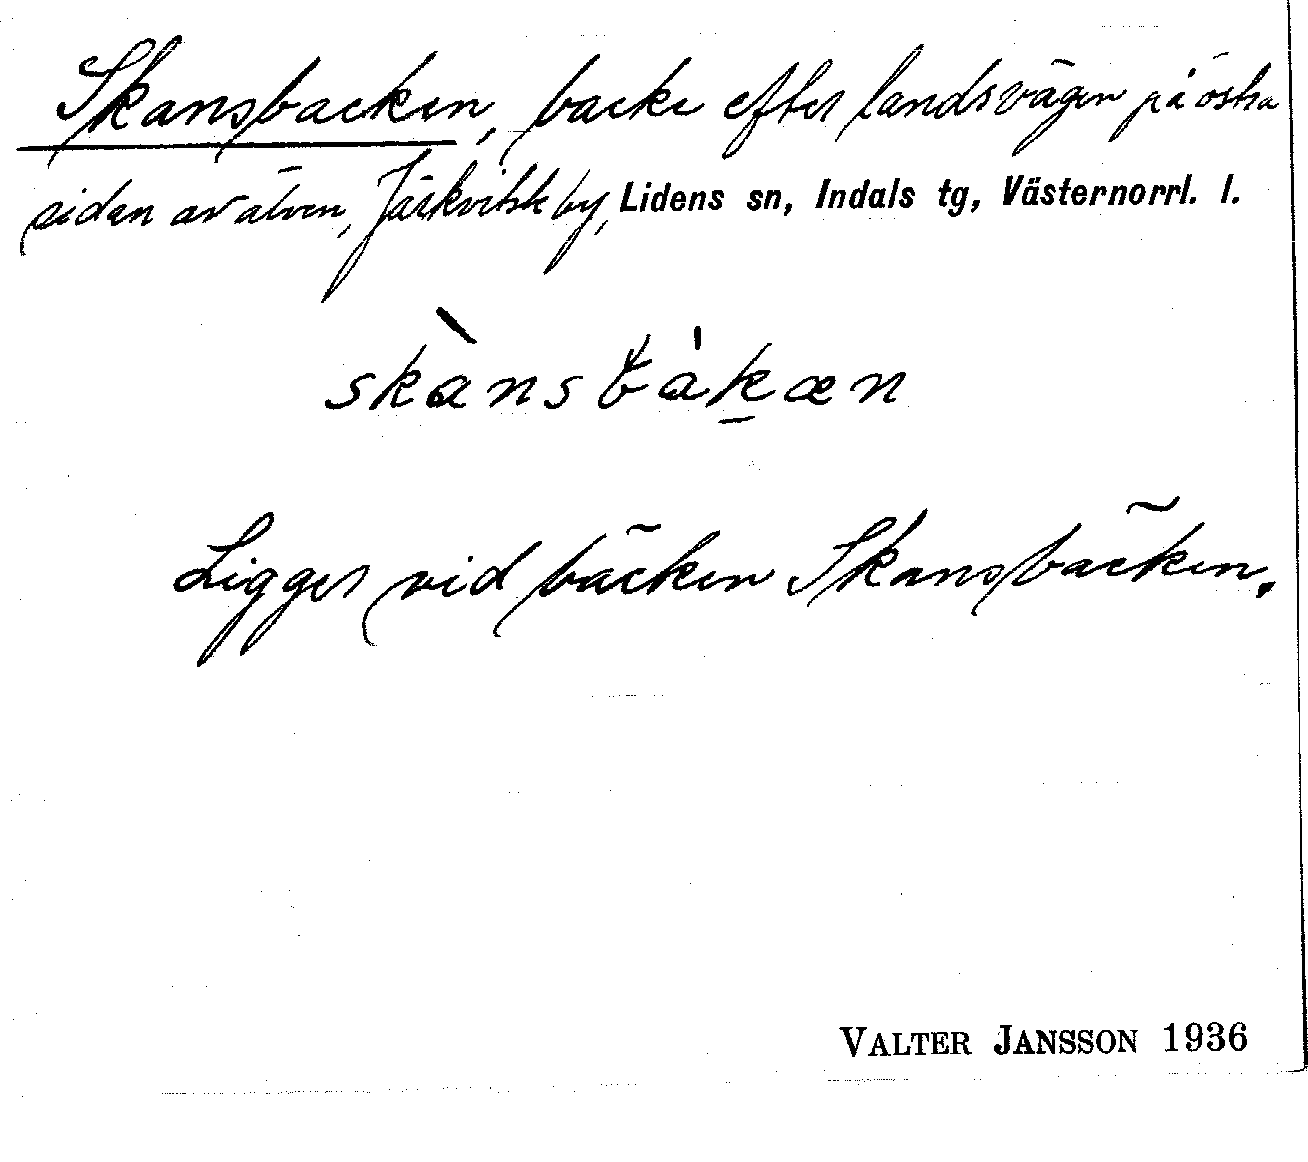 Skansbacken, backe efter landsvägen på östra
siden av älven, Järkvitsle by, Lidens sn, Indals tg, Västernorrl. l.
skànsbàkæn
Ligger vid bäcken Skansbäcken.
VALTER JANSSON 1936